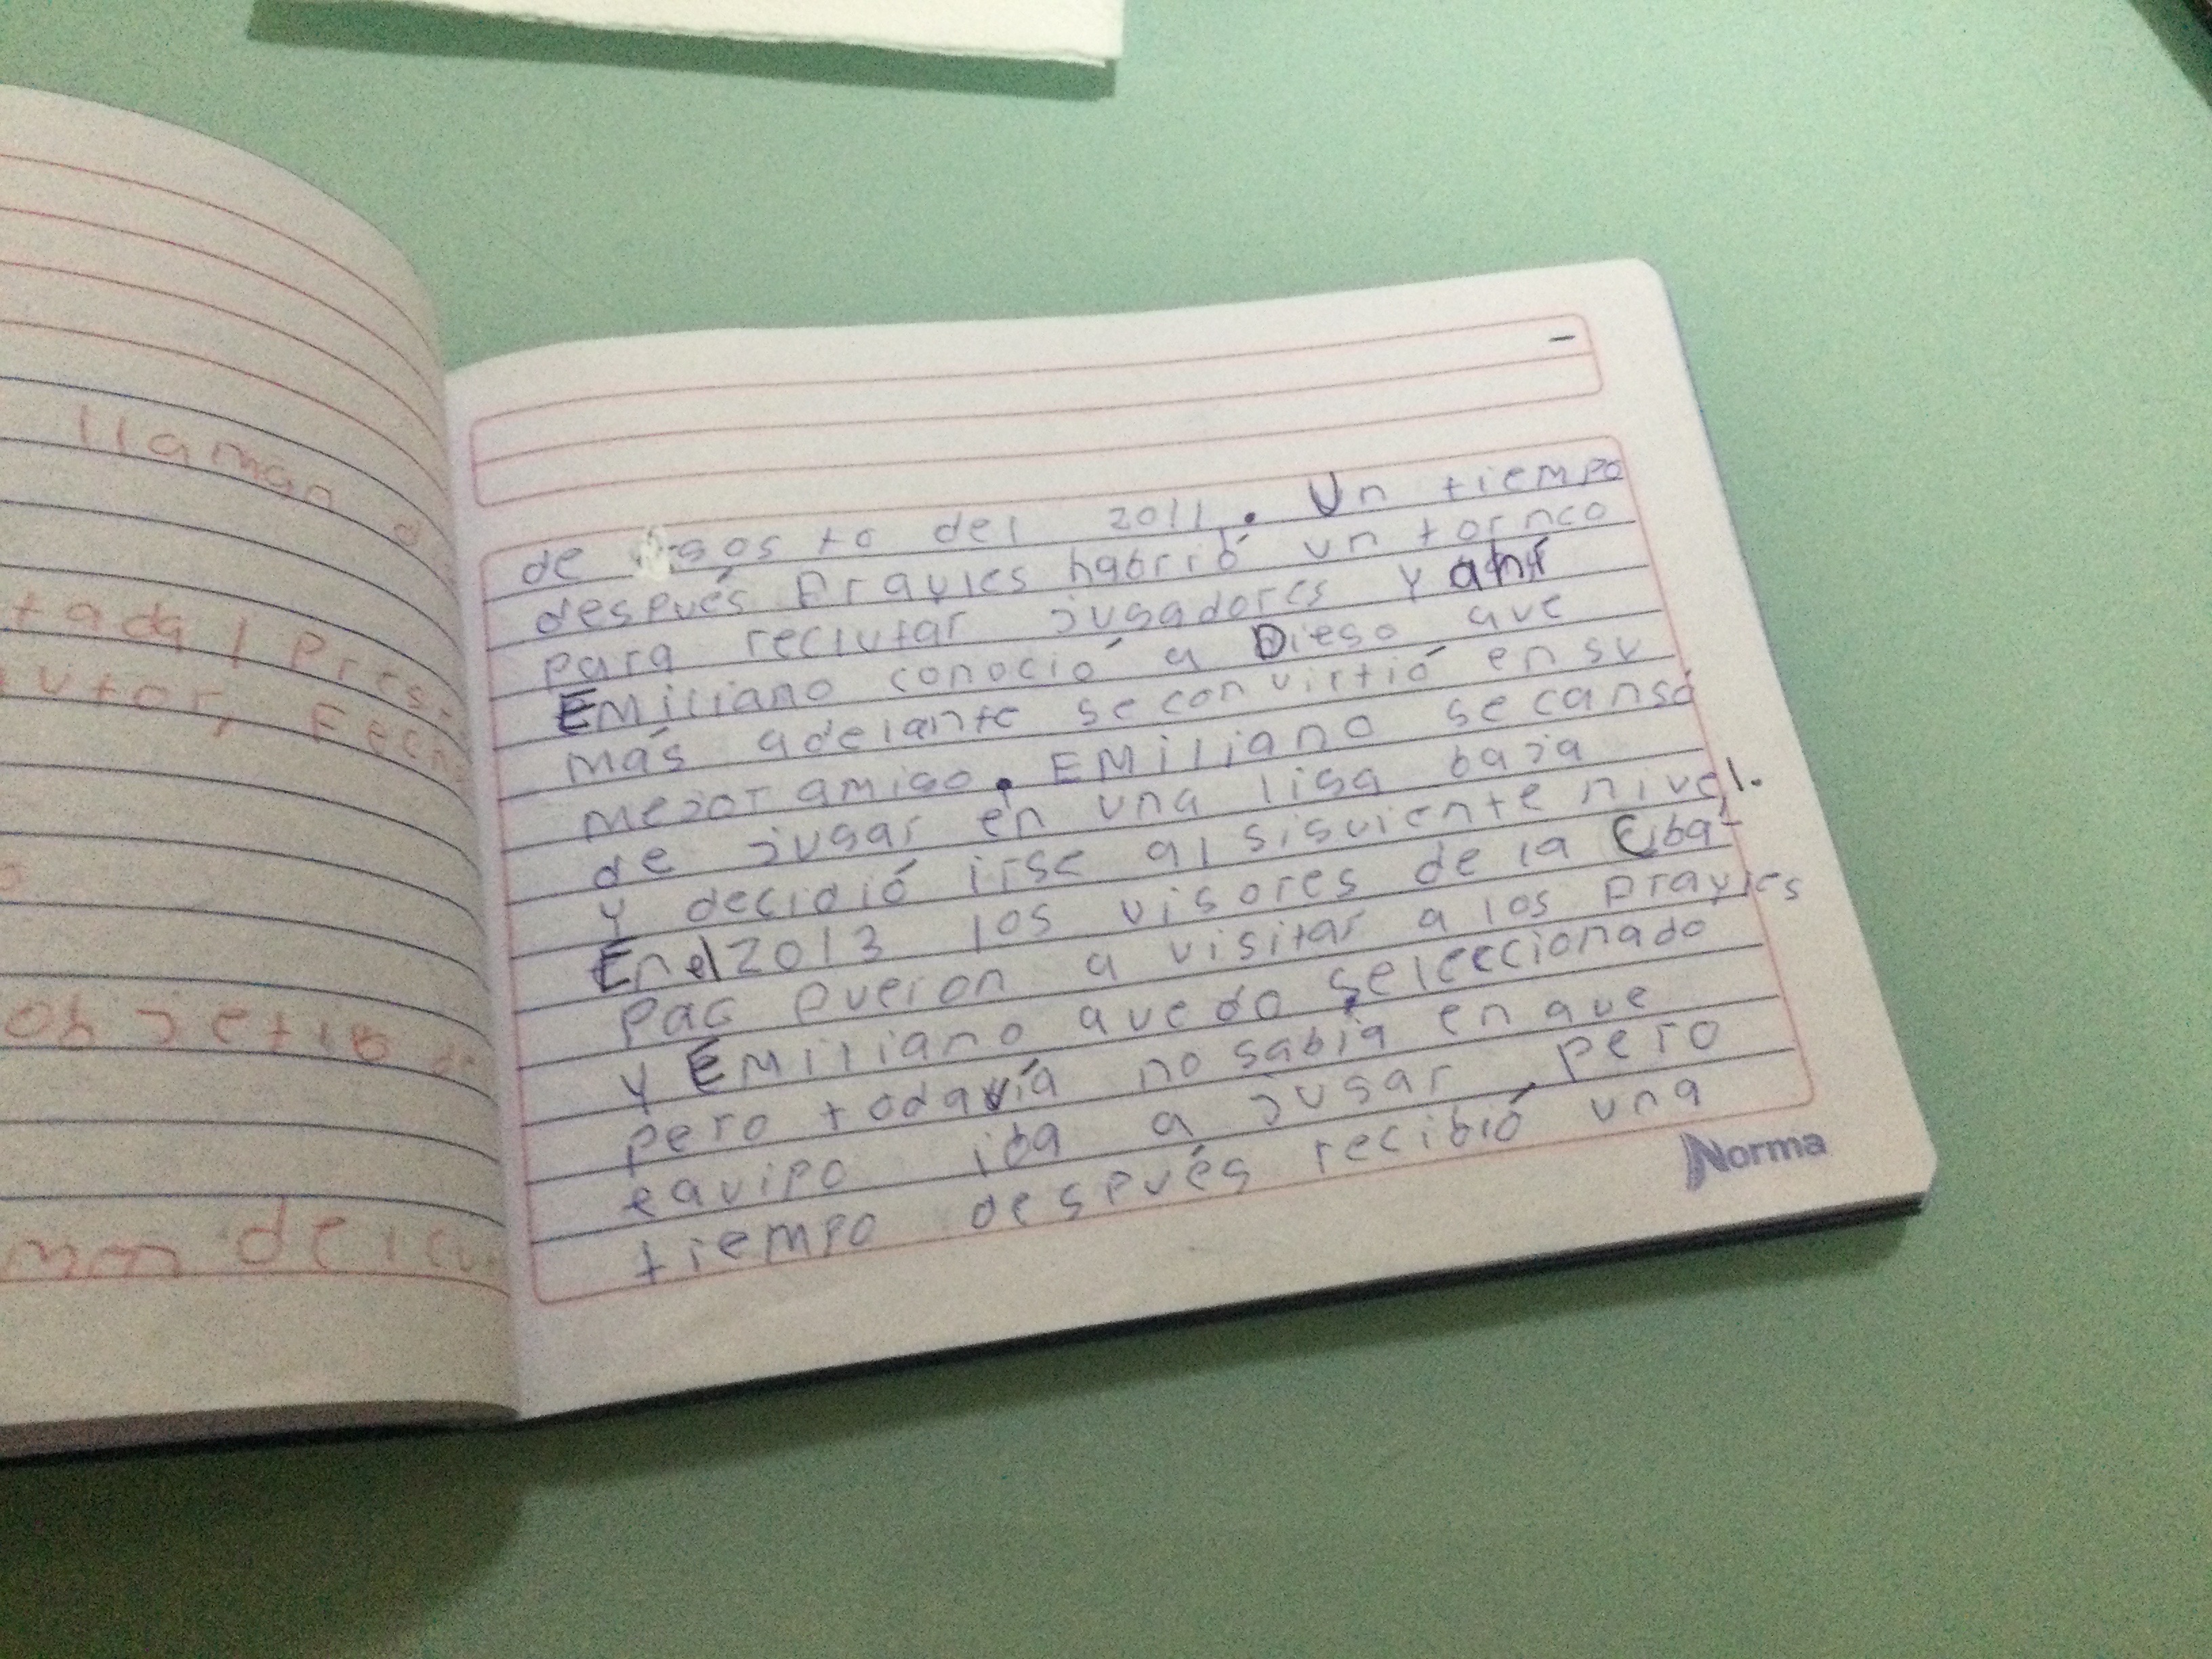 llaman d
tada l Pres.
utor, Fech
de agosto del 2011. Un tiempo
después Frayles habrió un torneo
para reclutar jugadores y ahí
Emiliano conoció a Diego que
más adelante se convirtió en su
mejor amigo. Emiliano se cansó
de jugar en una liga baja
y decidió irse al siguiente nivel.
En el 2013 los visores de la Ciba-
Pac fueron a visitar a los Frayles
y Emiliano quedo seleccionado
pero todavía no sabía en que
equipo iba a jugar, pero
tiempo después recibió una
Norma